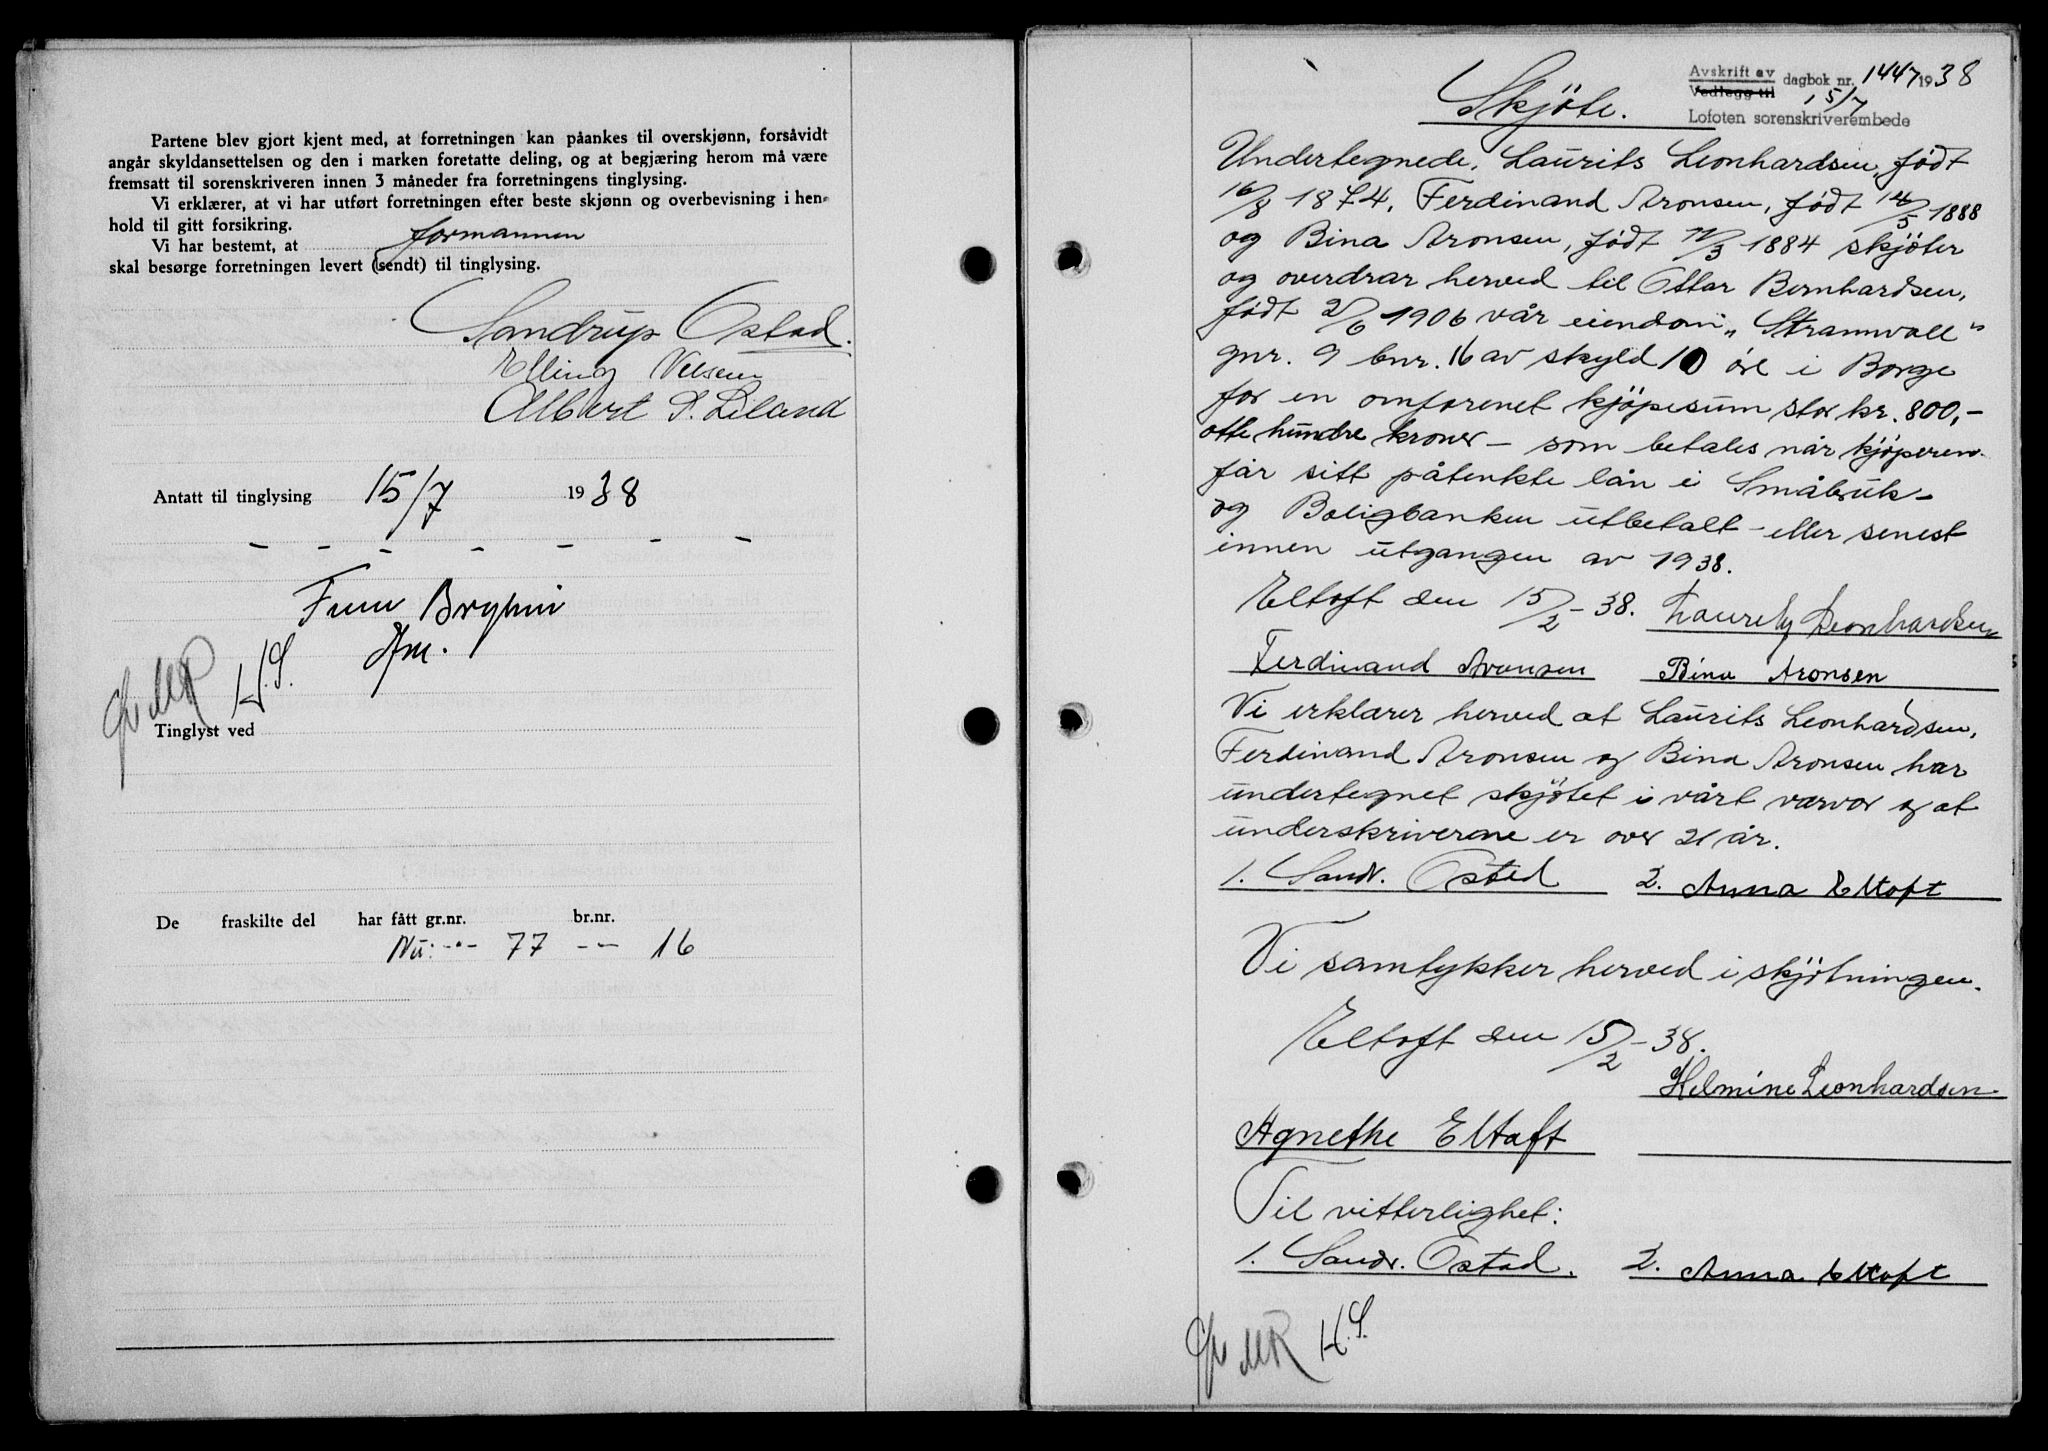 Partene blev gjort kjent med, at forretningen kan påankes til overskjønn, forsåvidt
angår skyldansettelsen og den i marken foretatte deling, og at begjæring herom må være
fremsatt til sorenskriveren innen 3 måneder fra forretningens tinglysing.
Vi erklærer, at vi har utført forretningen efter beste skjønn og overbevisning i hen-
hold til gitt forsikring.
Vi har bestemt, at formannen
skal besørge forretningen levert (sendt) til tinglysing.
Sandrup Ostad.
Elling Nilsen
Albert P. Liland
Antatt til tinglysing 15/7 1938
H.S.
Tinglyst ved
De fraskilte del har fått gr.nr. br.nr.
Nu: -"- 77 -"- 16
Avskrift av dagbok nr. 1447 1938
Vedlegg til 15/7
Lofoten sorenskriverembede
Skjöte.
Undertegnede, Laurits Leonhardsen, född
16/8 1874, Ferdinand Aronsen, födt 14/5 1888
og Bina Aronsen, födt /3 1884 skjöter
og overdrar herved til Ottar Bernhardsen,
födt 2/6 1906 vår eiendom „Stramvoll"
gnr. 9 bnr. 16 av skyld 10 öre i Borge
for en omforenet kjöpesum stor kr. 800,-
otte hundre kroner – som betales når kjöperen
får sitt påtenkte lån i Småbruk-
og Boligbanken utbetalt – eller senest
innen utgangen av 1938.
Eltoft den 15/2-38. Laurits Leonhardsen
Ferdinand Aronsen Bina Aronsen
Vi erklærer herved at Laurits Leonhardsen,
Ferdinand Aronsen og Bina Aronsen har
undertegnet skjötet i vårt nærvær og at
underskriverne er over 21 år.
1. Sandr. Ostad 2. Anna Eltoft
Vi samtykker herved i skjötningen.
Eltoft den 15/2-38.
Helmine Leonhardsen
Agnethe Eltoft
Til vitterlighet:
1. Sandr. Ostad. 2. Anna Eltoft
H.S.